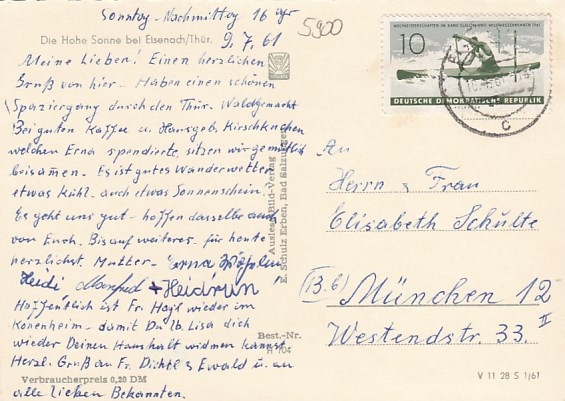 Sonntag-Nachmittag 16 Uhr
9.7.61
5900
Die Hohe Sonne bei Eisenach/Thür.
Meine Lieben! Einen herzlichen
Gruß von hier - Haben einen schönen
Spaziergang durch den Thür. Wald gemacht
Bei guten Kaffee u. Hausgeb. Kirschkuchen
welchen Erna spendierte, sitzen wir gemütlich
beisamen. Es ist gutes Wanderwetter
etwas kühl, auch etwas Sonnenschein.
Es geht uns gut - hoffen dasselbe auch
von Euch. Bis auf weiteres für heute
herzlichst Mutter - Erna
Heidi Manfred + Heidrun
Hoffentlich ist Fr. wieder im
- damit Du lb. Lisa dich
wieder Deinen Haushalt widmen kannst.
Herzl. Gruß an Fr. Dichtl & Ewald u. an
alle lieben Bekannten.
Verbraucherpreis 0,20 DM
Auslese-Bild-Verlag
E. Schulz Erben, Bad Salzungen
Best.-Nr.
H 104
10
DEUTSCHE DEMOKRATISCHE REPUBLIK
c
An
Herrn & Frau
Elisabeth Schulte
(13.b) München 12
Westendstr. 33. II
V 11 28 S 1/61